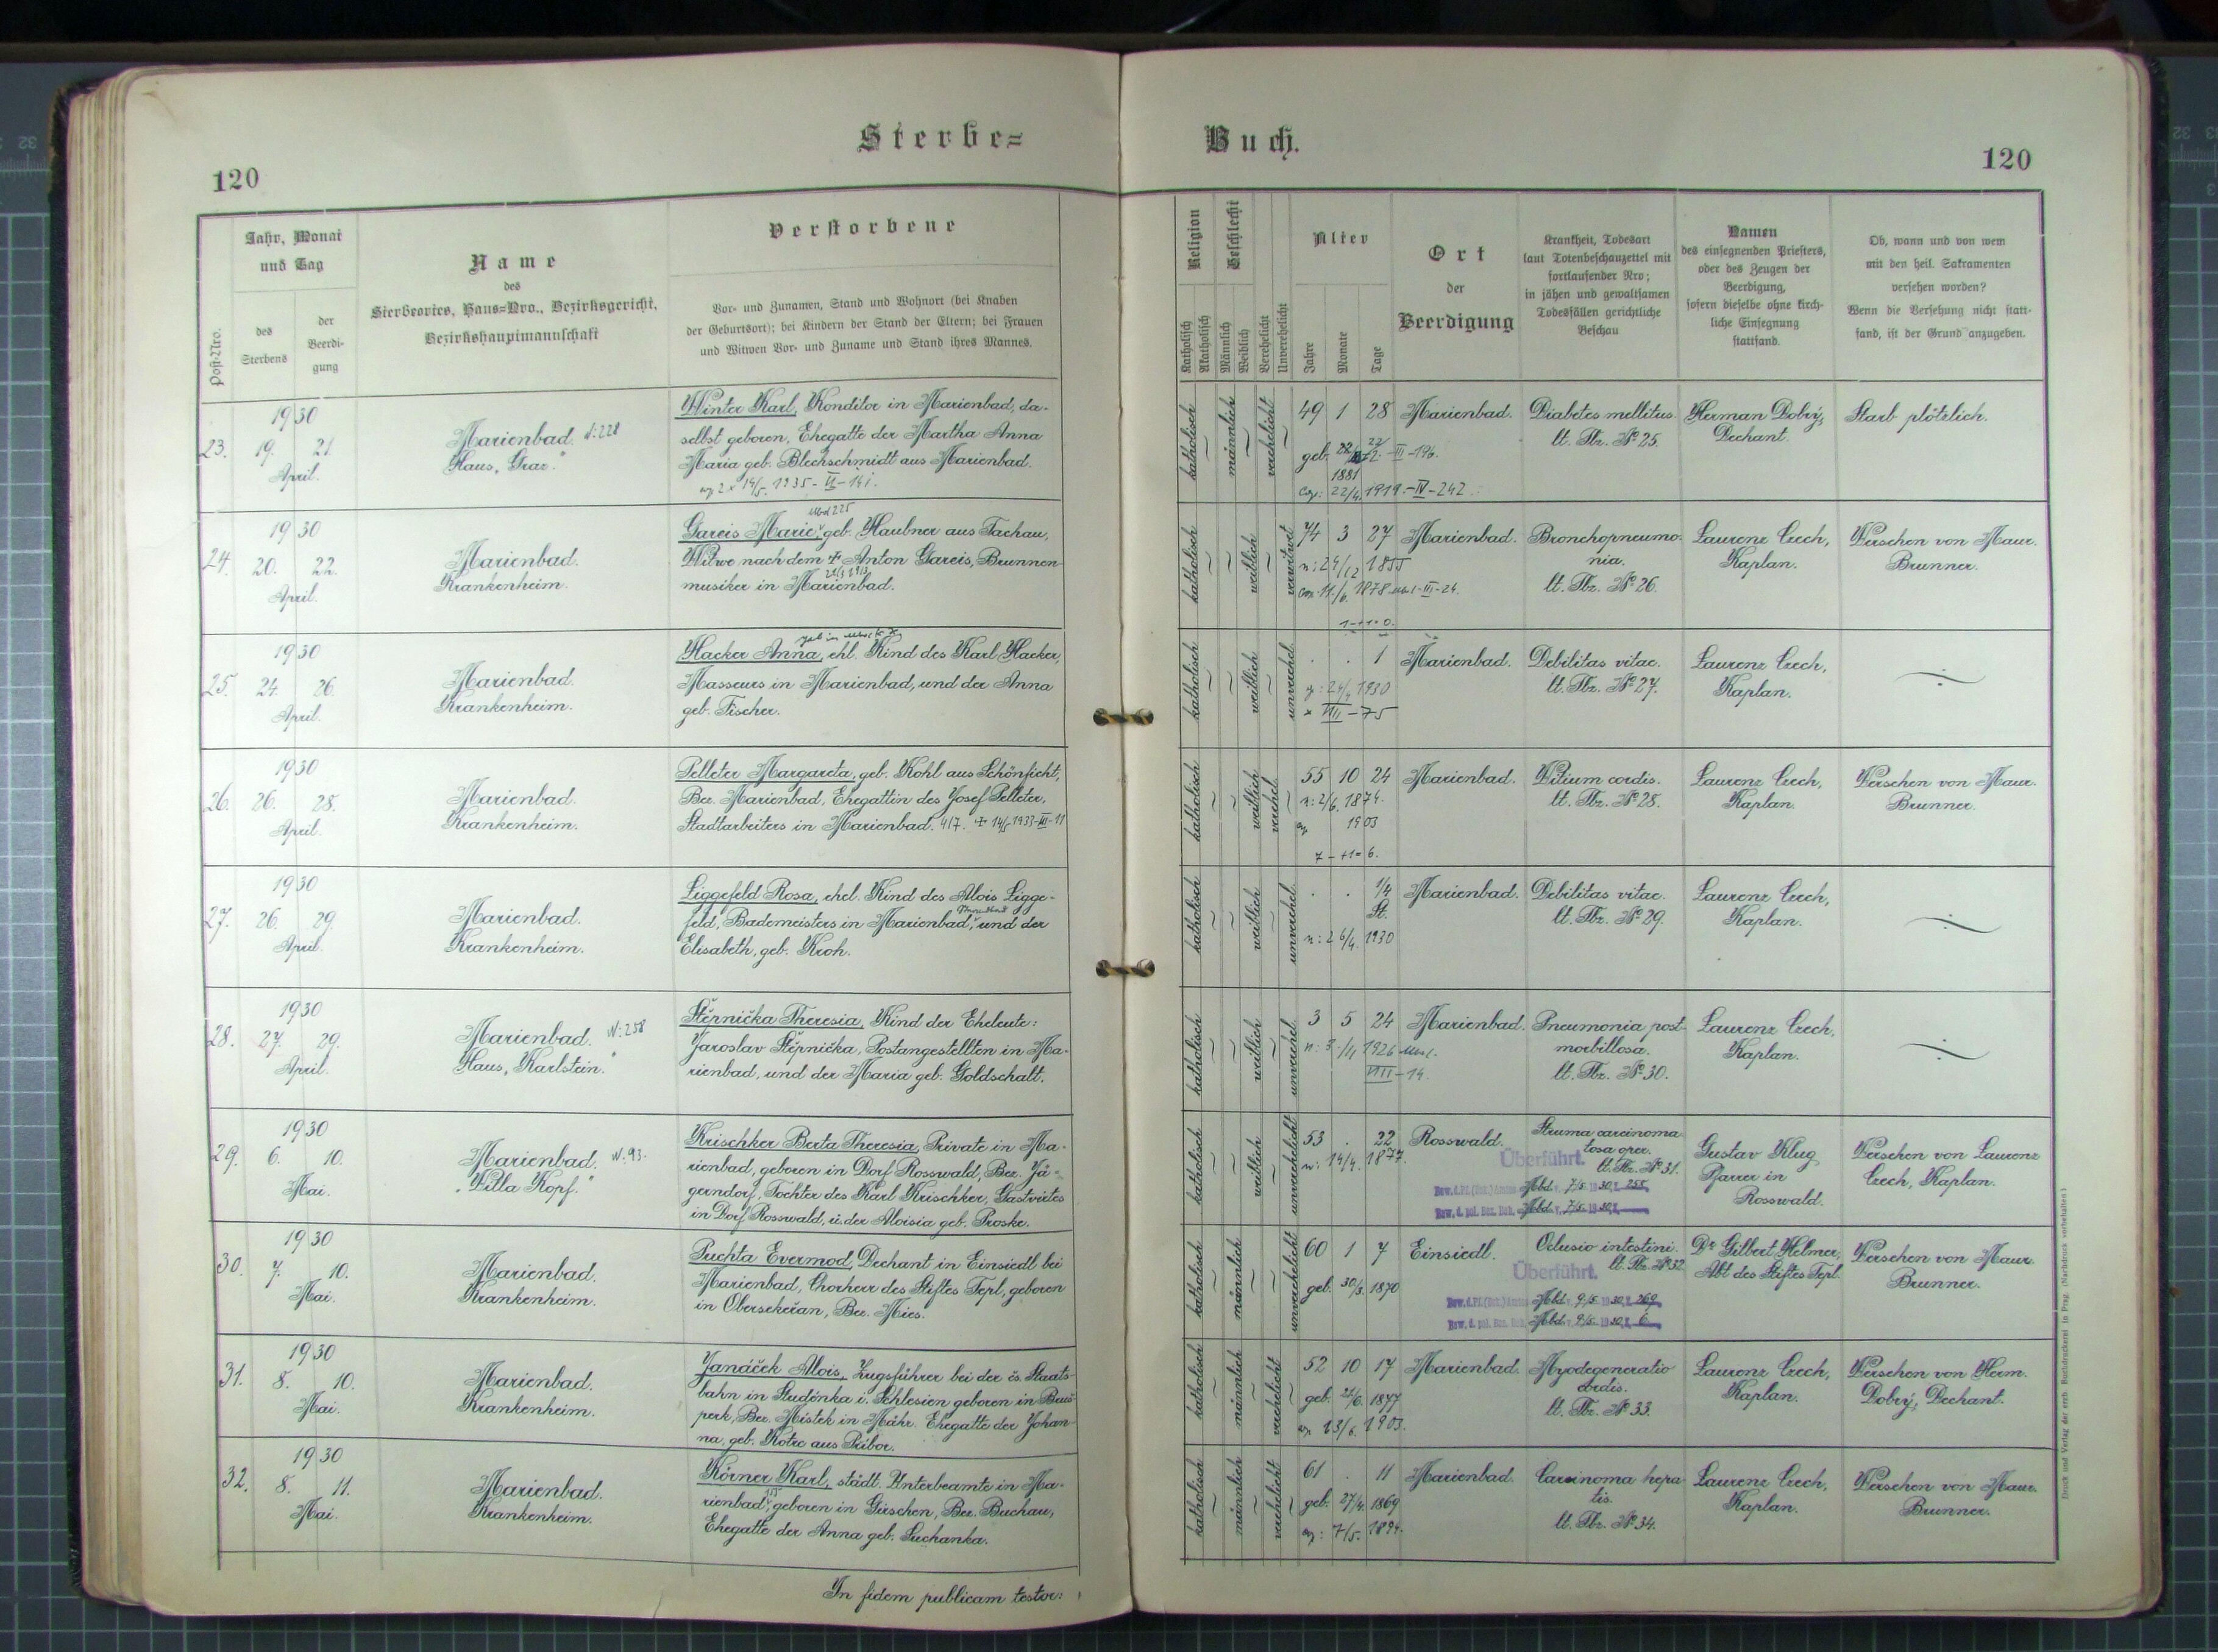 Sterbe=
Buch.
120
120
Post-Nro.
Jahr, Monat
und Tag
des
Sterbens
der
Beerdi-
gung
Name
des
Sterbeortes, Haus=Nro., Bezirksgericht,
Bezirkshauptmannschaft
Verstorbene
Vor- und Zunamen, Stand und Wohnort (bei Knaben
der Geburtsort); bei Kindern der Stand der Eltern; bei Frauen
und Witwen Vor- und Zuname und Stand ihres Mannes.
Religion
Katholisch
Akatholisch
Geschlecht
Männlich
Weiblich
Verehelicht
Unverehelicht
Alter
Jahre
Monate
Tage
Ort
der
Beerdigung
Krankheit, Todesart
laut Totenbeschauzettel mit
fortlaufender Nro;
in jähen und gewaltsamen
Todesfällen gerichtliche
Beschau
Namen
des einsegnenden Priesters,
oder des Zeugen der
Beerdigung,
sofern dieselbe ohne kirch-
liche Einsegnung
stattfand.
Ob, wann und von wem
mit den heil. Sakramenten
versehen worden?
Wenn die Versehung nicht statt-
fand, ist der Grund anzugeben.
1930
23. 19. 21.
April.
Marienbad. N:228
Haus „Graz."
Winter Karl, Konditor in Marienbad, da-
selbst geboren, Ehegatte der Martha Anna
Maria geb. Blechschmidt aus Marienbad.
14/5. 1935 - VI - 141.
katholisch männlich verehelicht
49 1 28
geb. 22/2. - III - 196.
1881
cop: 22/4. 1919. - IV - 242.
Marienbad.
Diabetes mellitus.
lt. Tbz. No 25.
Herman Dobrý,
Dechant.
Starb plötzlich.
1930
24. 20. 22.
April.
Marienbad.
Krankenheim.
Gareis Marie, geb. Haubner aus Tachau,
Witwe nach dem + Anton Gareis, Brunnen-
musiker in Marienbad.
katholisch weiblich verwitwet
74 3 27
n: 24/12 1855
cop. 11/6. 1878 III-24.
Marienbad.
Bronchopneumo-
nia.
lt. Tbz. No 26.
Laurenz Čech,
Kaplan.
Versehen von Maur.
Brunner.
1930
25. 24. 26.
April.
Marienbad.
Krankenheim.
Hacker Anna, ehl. Kind des Karl Hacker,
Masseurs in Marienbad, und der Anna
geb. Fischer.
katholisch weiblich unverehel.
. . 1
24/4 1930
VIII - 75
Marienbad.
Debilitas vitae.
lt. Tbz. No 27.
Laurenz Čech,
Kaplan.
1930
26. 26. 28.
April.
Marienbad.
Krankenheim.
Pelleter Margareta, geb. Kohl aus Schönficht,
Bez. Marienbad, Ehegattin des Josef Pelleter,
Stadtarbeiters in Marienbad. 417. + 14/5 1933-III-11
katholisch weiblich verehel.
55 10 24
n: 2/6. 1874.
1903
7 - +1 = 6.
Marienbad.
Vitium cordis.
lt. Tbz. No 28.
Laurenz Čech,
Kaplan.
Versehen von Maur.
Brunner.
1930
27. 26. 29.
April.
Marienbad.
Krankenheim.
Liggefeld Rosa, ehel. Kind des Alois Ligge-
feld, Bademeisters in Marienbad, und der
Elisabeth, geb. Kroh.
katholisch weiblich unverehel.
. . 1/4
St.
n: 26/4. 1930
Marienbad.
Debilitas vitae.
lt. Tbz. No 29.
Laurenz Čech,
Kaplan.
1930
28. 27. 29.
April.
Marienbad. N:258
Haus „Karlstein."
Stěpnička Theresia, Kind der Eheleute:
Jaroslav Stěpnička, Postangestellten in Ma-
rienbad, und der Maria geb. Goldschalt.
katholisch weiblich unverehel.
3 5 24
n: 3/11 1926
VIII - 14.
Marienbad.
Pneumonia post-
morbillosa.
lt. Tbz. No 30.
Laurenz Čech,
Kaplan.
1930
29. 6. 10.
Mai.
Marienbad. N:93.
„Villa Kopf."
Krischker Berta Theresia, Private in Ma-
rienbad, geboren in Dorf Rosswald, Bez. Jä-
gerndorf, Tochter des Karl Krischker, Gastwirtes
in Dorf Rosswald, u. der Aloisia geb. Proske.
katholisch weiblich unverehelicht
53 . 22
n: 14/4. 1877.
Rosswald.
Struma carcinoma-
tosa oper.
lt. Tbz. No 31.
Überführt.
Mbd. 7/5. 1930, Z. 255.
Mbd. 7/5. 1930, Z.
Gustav Klug
Pfarrer in
Rosswald.
Versehen von Laurenz
Čech, Kaplan.
1930
30. 7. 10.
Mai.
Marienbad.
Krankenheim.
Puchta Evermod, Dechant in Einsiedl bei
Marienbad, Chorherr des Stiftes Tepl, geboren
in Obersekeřan, Bez. Mies.
katholisch männlich unverehelicht
60 1 7
geb. 30/3. 1870
Einsiedl.
Oclusio intestini.
lt. Tbz. No 32
Überführt.
Mbd. 9/5. 1930, Z. 269.
Mbd. 9/5. 1930, Z. 6.
Dr Gilbert Helmer,
Abt des Stiftes Tepl.
Versehen von Maur.
Brunner.
1930
31. 8. 10.
Mai.
Marienbad.
Krankenheim.
Janáček Alois, Zugsführer bei der čs. Staats-
bahn in Studénka i. Schlesien geboren in Bruš-
perk, Bez. Mistek in Mähr. Ehegatte der Johan-
na, geb. Kotrc aus Příbor.
katholisch männlich verehelicht
52 10 17
geb. 21/6. 1877
23/6. 1903.
Marienbad.
Myodegeneratio
cordis.
lt. Tbz. No 33.
Laurenz Čech,
Kaplan.
Versehen von Herm.
Dobrý, Dechant.
1930
32. 8. 11.
Mai.
Marienbad.
Krankenheim.
Körner Karl, städt. Unterbeamte in Ma-
rienbad, geboren in Gieschen, Bez. Buchau,
Ehegatte der Anna geb. Suchanka.
katholisch männlich verehelicht
61 . 11
geb. 27/4. 1869
7/5. 1894.
Marienbad.
Carcinoma hepa-
tis.
lt. Tbz. No 34.
Laurenz Čech,
Kaplan.
Versehen von Maur.
Brunner.
In fidem publicam testor:
Druck und Verlag der erzb. Buchdruckerei in Prag. (Nachdruck vorbehalten)